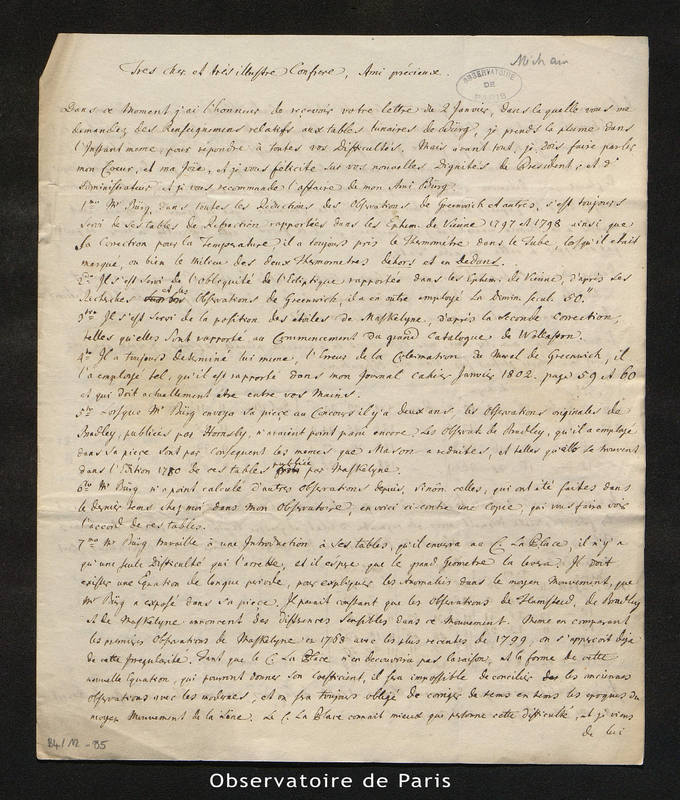 Mechain
OBSERVATOIRE
DE
PARIS
Tres cher et très illustre Confrere, Ami précieux.
Dans ce moment j'ai l'honneur de recevoir votre lettre du 2 Janvier, dans laquelle vous me
demandez des Renseignemens relatifs aux tables lunaires de Bürg, je prends la plume dans
l'instant meme, pour répondre à toutes vos Difficultés. Mais avant tout, je dois faire parler
mon Coeur, et ma Joie, et je vous felicite sur vos nouvelles Dignités de President; et d'
Administrateur et je vous recommande l'affaire de mon Ami Bürg.
1mo Mr Bürg, dans toutes les Reductions des Observations de Greenwich et autres, s'est toujours
servi de ses tables de Refraction rapportées dans les Ephem. de Vienne 1797 et 1798 ainsi que
sa Correction pour la Temperature; il a toujours pris le Thermometre dans le Tube, lorsqu'il etait
marqué, ou bien le milieu des deux Thermometres dehors et en dedans.
2do Il s'est servi de l'obliquité de l'Ecliptique rapportée dans les Ephem. de Vienne, d'après ses
Recherches et les Observations de Greenwich, il a en outre employé la Dimin. secul. 50."
3tio Il s'est servi de la position des étoiles de Maskelyne, d'après la seconde correction,
telles qu'elles sont rapporté au Commencement du grand Catalogue de Wollaston.
4to Il a toujours determiné lui meme, l'Erreur de la Colimation du Mural de Greenwich, il
l'a employé tel, qu'il est rapporté dans mon Journal cahier Janvier 1802. page 59 et 60
et qui doit actuellement être entre vos Mains.
5to Lorsque Mr Bürg envoya sa piece au Concours il y a deux ans, les Observations originales de
Bradley, publiées par Hornsby, n'avaient point paru encore. Les Observat. de Bradley, qu'il a employé
dans sa piece sont par consequent les memes que Mason a reduites, et telles qu'elles se trouvent
dans l'Edition 1780 de ces tables publiée par Maskelyne.
6to Mr Bürg n'a point calculé d'autres Observations depuis, sinon celles, qui ont été faites dans
le dernier tems chez moi dans mon Observatoire, en voici ci-contre une copie, qui vous faira voir
l'accord de ces tables.
7mo Mr Bürg travaille à une Introduction à ses tables, qu'il enverra au C. La Place, il n'y a
qu'une seule Difficulté qui l'arrette, et il espere que le grand Géometre la levera. Il doit
exister une Equation de longue periode, pour expliquer les Anomalies dans le moyen Mouvement, que
Mr Bürg a exposé dans sa piece. Il parait constant que les Observations de Flamsteed, de Bradley
et de Maskelyne annoncent des differences sensibles dans ce Mouvement. Meme en comparant
les premieres Observations de Maskelyne en 1765 avec les plus recentes de 1799, on s'apperçoit deja
de cette irregularité. Tant que le C. La Place n'en decouvrira pas la raison, et la forme de cette
nouvelle Equation, qui pourront donner son Coefficient, il sera impossible de concilier les anciennes
observations avec les modernes, et on sera toujours obligé de corriger de tems en tems les epoques du
moyen Mouvement de la Lune. Le C. La Place connait mieux que personne cette difficulté, et je viens
de lui
B4/12 -85
Observatoire de Paris